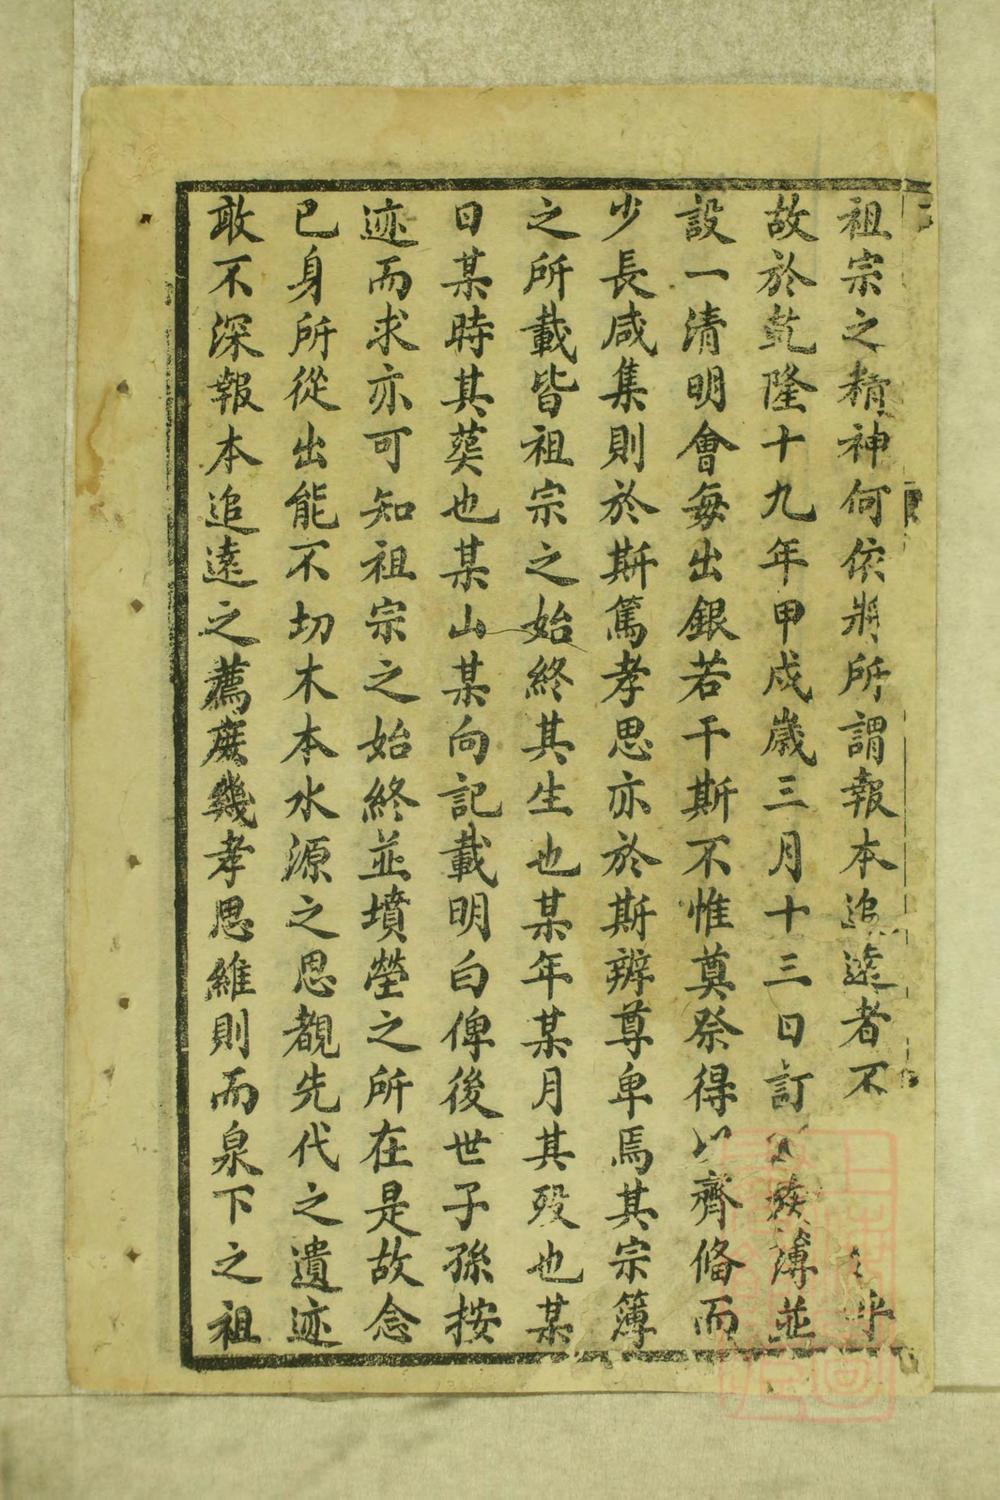 祖宗之精神何依將所謂報本追遠者不乎
故於乾隆十九年甲戍嵗三月十三日訂族薄並
設一清明會每出銀若干斯不惟奠祭得以齊俻而
少長咸集則於斯篤孝思亦於斯辨尊卑焉其宗簿
之所載皆祖宗之始終其生也某年某月其殁也某
日某時其葬也某山某向記載明白俾後世子孫按
迹而求亦可知祖宗之始終並墳塋之所在是故念
已身所從出能不切木本水源之思覩先代之遺迹
敢不深報本追遠之薦庶幾孝思維則而泉下之祖